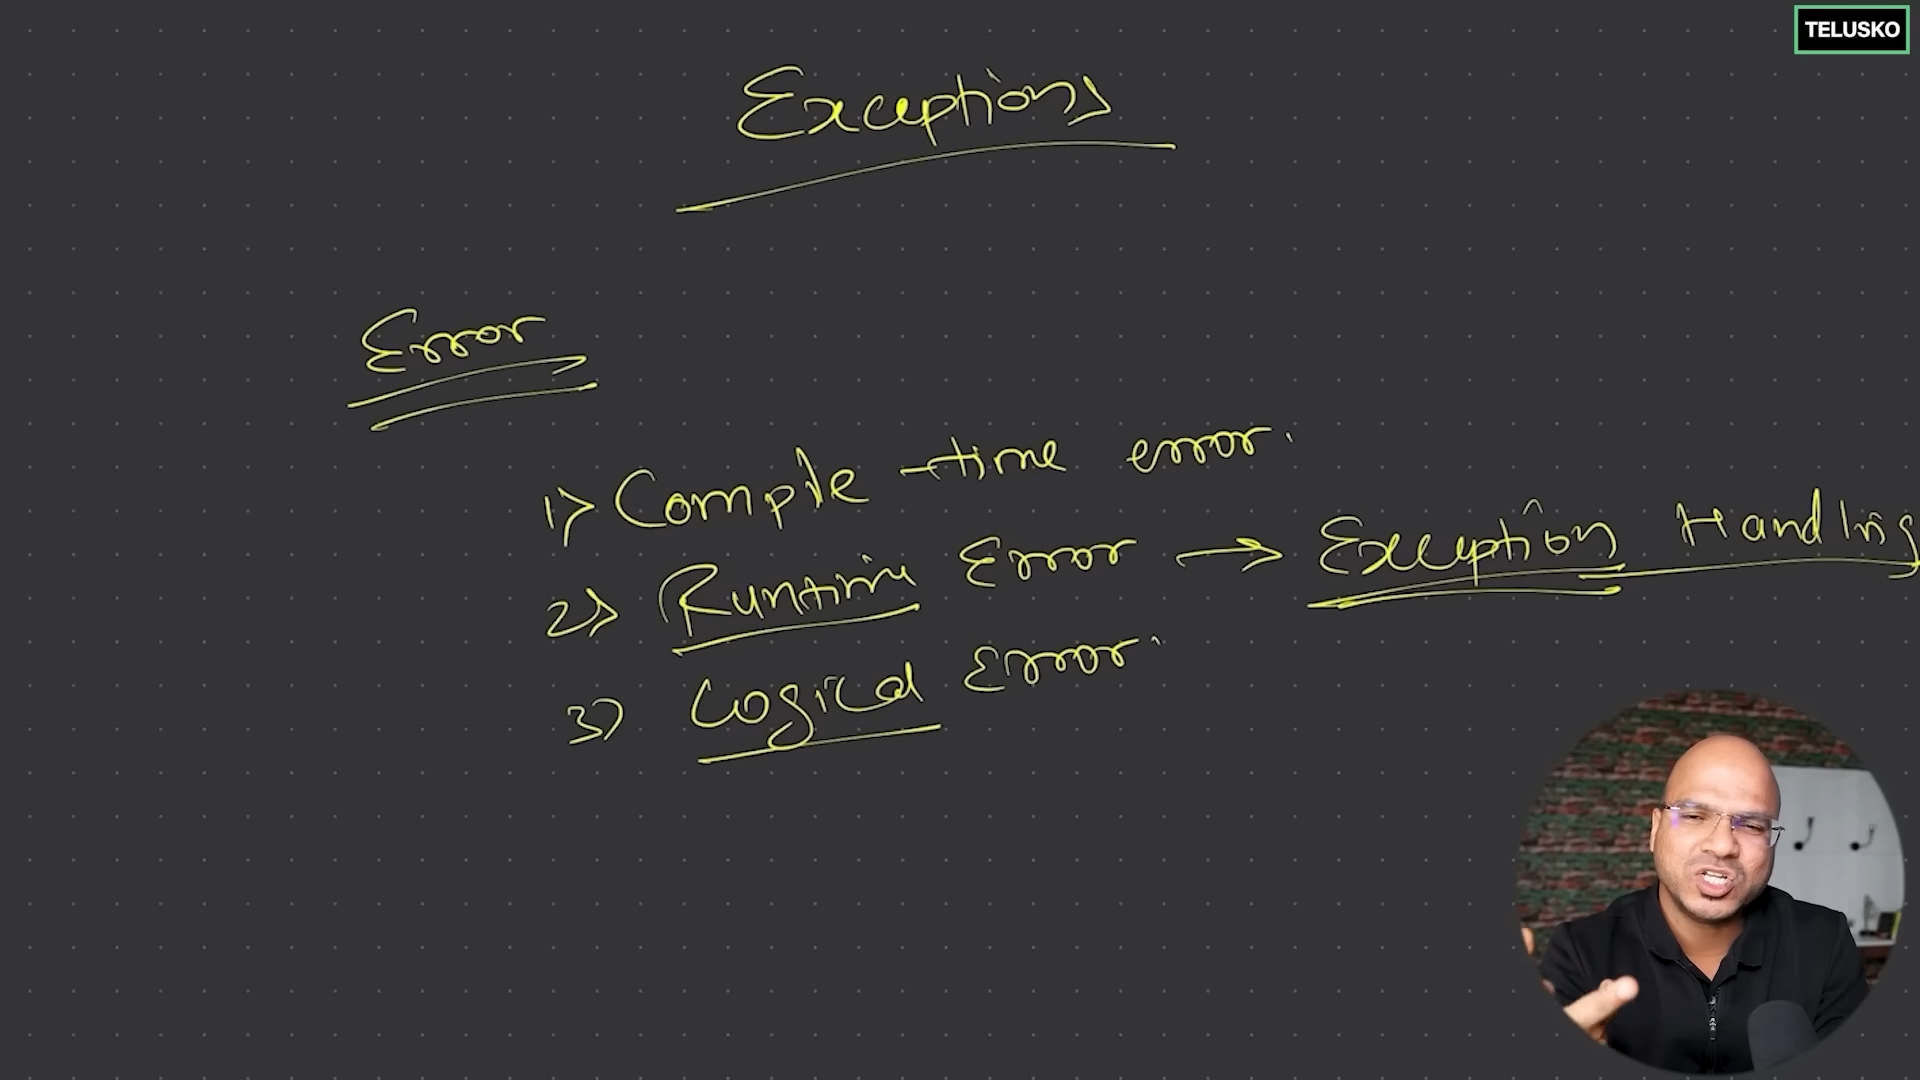 TELUSKO
Exceptions
Error
1) Compile-time error.
2) Runtime Error → Exception Handling
3) Logical Error.